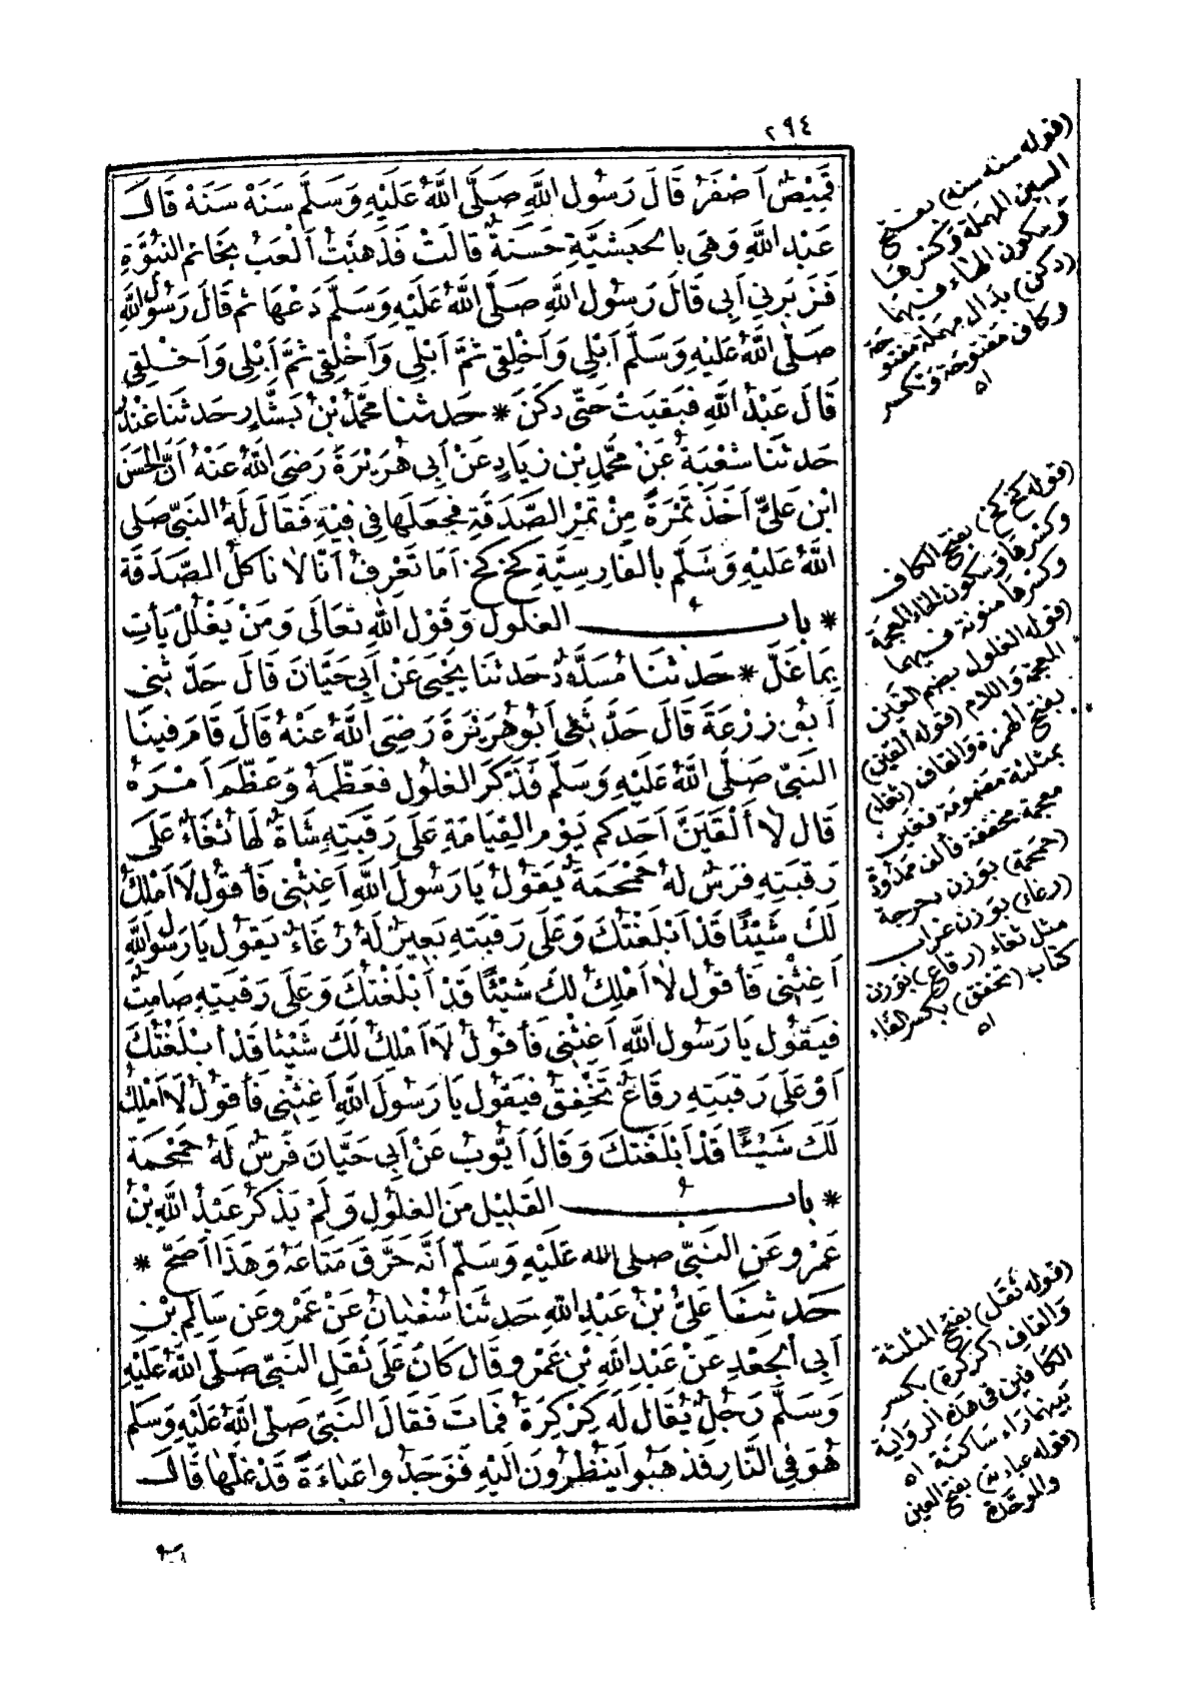 ٢٩٤
قَمِيْصٌ اَصْفَرُ قَالَ رَسُول اللَّهِ صَلَّى اللَّهُ عَلَيْهِ وَسَلَّمَ سَنَهْ سَنَهْ قَالَ
عَبْد اللَّهِ وَهْىَ بِالحَبَشِيَّةِ حَسَنَةٌ قَالَتْ فَذَهَبْتُ أَلْعَبُ بِخَاتَم النُّبُوَّةِ
فَزَبَرَنِي أَبِي قَالَ رَسُول اللَّهِ صَلَّى اللَّهُ عَلَيْهِ وَسَلَّمَ دَعْهَا ثم قَالَ رَسُولُ اللَّهِ
صَلَّى اللَّهُ عَلَيْهِ وَسَلَّمَ أَبْلِي وَأَخْلِقِي ثُمَّ أَبْلِي وَأَخْلِقِي ثُمَّ أَبْلِي وَأَخْلِقِي
قَالَ عَبْدُ اللَّهِ فَبَقِيَتْ حَتَّى دَكَنَ * حَدثنا محَمَّدُ بْنُ بَشَّارٍ حَدثنَا غُنْدَرٌ
حَدثنَا شعْبَةُ عَنْ محَمَّدِ بْن زِيَادٍ عَنْ أَبِي هُرَيْرَةَ رَضِىَ اللَّهُ عَنْهُ أَنَّ الحَسَنَ
ابْن عَلِيٍّ أَخَذَ تَمْرَةً مِنْ تَمْرِ الصَّدَقَةِ فجَعَلَهَا فِي فِيْهِ فَقَالَ لَهُ النَّبِيّ صَلى
اللَّهُ عَلَيْهِ وَسَلَّمَ بِالفَارِسِيَّةِ كَخْ كَخْ اَمَا تَعْرِفُ أَنَّا لَا نَاكُلُ الصَّدَقَةَ
* بابُ الغلُول وَقَوْل اللَّهِ تعَالَى وَمَنْ يَغْلُلْ يَأتِ
بِمَا غَلَّ * حَدثنَا مُسَدَّدٌ حَدثنَا يَحْيَى عَنْ أَبِي حَيَّانَ قَالَ حَدَّثَنِي
أَبُو زرْعَةَ قَالَ حَدَّثَنِي أَبُو هُرَيْرَةَ رَضِىَ اللَّهُ عَنْهُ قَالَ قَامَ فِينَا
النَّبِيّ صَلَّى اللَّهُ عَلَيْهِ وَسَلَّمَ فَذَكَرَ الغلُول فَعَظَّمَهُ وَعَظَّمَ اَمْرَهُ
قَالَ لَا أُلْقَيَنَّ اَحَدَكم يَوْمَ القِيَامَةِ عَلَى رَقَبَتِهِ شَاةٌ لَهَا ثُغَاءٌ عَلَى
رَقَبَتِهِ فَرَسٌ لَهُ حَمْحَمَةٌ يَقُولُ يَا رَسُولَ اللَّهِ اَغِثْنِي فَأَقُولُ لَا اَمْلِكُ
لَكَ شَيْئًا قَدْ اَبْلَغْتُكَ وَعَلَى رَقَبَتِهِ بَعِيرٌ لَهُ رُغَاءٌ يَقُول يَا رَسُولَ اللَّهِ
اَغِثْنِي فَأَقُولُ لَا اَمْلِكُ لَكَ شَيْئًا قَدْ أَبْلَغْتُكَ وَعَلَى رَقَبَتِهِ صَامِتٌ
فَيَقُول يَا رَسُول اللَّهِ اَغِثْنِي فَأَقُولُ لَا اَمْلِكُ لَكَ شَيْئًا قَدْ أَبْلَغْتُكَ
اَوْ عَلَى رَقَبَتِهِ رِقَاعٌ تَخْفِقُ فَيَقُول يَا رَسُولَ اللَّهِ اَغِثْنِي فَأَقُولُ لَا اَمْلِكُ
لَكَ شَيْئًا قَدْ اَبْلَغْتُكَ وَقَالَ اَيُّوبُ عَنْ أَبِي حَيَّانَ فَرَسٌ لَهُ حَمْحَمَة
* بابُ القَلِيْل مِنَ الغلُولِ وَلَمْ يَذكُرْ عَبْدُ اللَّهِ بْنُ
عَمْرٍو عَنِ النَّبِيّ صلى الله عَلَيْهِ وَسَلَّمَ أَنَّهُ حَرَّقَ مَتَاعَهُ وَهَذَا أَصَحُّ *
حَدثنا عَلِيُّ بْنُ عَبْدِ اللَّهِ حَدثنَا سُفْيَانُ عَنْ عَمْرٍو عَن سَالِمِ بْنِ
أَبِي الجَعْدِ عَنْ عَبْدِ اللَّهِ بْنِ عَمْرٍو قَالَ كَانَ عَلَى ثَقَلِ النَّبِيّ صَلَّى اللَّهُ عَلَيْهِ
وَسَلَّمَ رَجُلٌ يُقَال لَهُ كِرْكِرَةُ فمَاتَ فَقَالَ النَّبِيّ صَلَّى اللَّهُ عَلَيْهِ وَسَلَّم
هُوَ فِي النَّارِ فَذَهَبُوا يَنْظُرُونَ اليْهِ فَوَجَدُوا عَبَاءَةً قَدْ غَلَّهَا قَالَ
(قوله سنه سنه) بفتح
السين المهملة وكسرها
وبسكون الهاء فيهما
(دكن) بدال مهملة مفتوحة
وكاف مفتوحة وتكسر
اه
(قوله كخ كخ) بفتح الكاف
وكسرها وسكون الخاء المعجمة
وكسرها منونة فيهما
(قوله الغلول بضم الغين
المعجمة واللام (قوله ألقين)
بفتح الهمزة والقاف (ثغاء)
بمثلثة مضمومة فغين
معجمة مخففة فألف ممدودة
(حمحمة) بوزن دحرجة
(رغاء) بوزن غراب
مثل ثغاء (رقاع) بوزن
كتاب (تخفق) بكسر الفاء
اه
(قوله ثقل) بفتح المثلثة
والقاف (كركرة) بكسر
الكافين في هذه الرواية
بينهما راء ساكنة اه
(قوله عباءة) بفتح العين
والموحدة